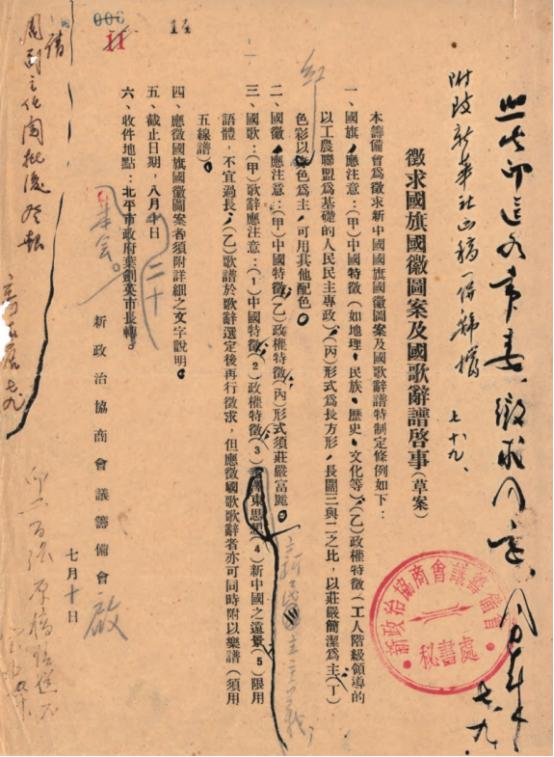 徵求國旗國徽圖案及國歌辭譜啓事(草案)
本籌備會爲徵求新中國國旗國徽圖案及國歌辭譜特制定條例如下:
一、國旗,應注意:(甲)中國特徵(如地理、民族、歷史、文化等)、(乙)政權特徵(工人階級領導的
以工農聯盟爲基礎的人民民主專政)、(丙)形式爲長方形,長闊三與二之比,以莊嚴簡潔爲主、(丁)
色彩以 色爲主,可用其他配色。
紅
二、國徽,應注意:(甲)中國特徵(乙)政權特徵(丙)形式須莊嚴富麗。
三、國歌:(甲)歌辭應注意:(1)中國特徵(2)政權特徵(3) 東思 (4)新中國之遠景(5)限用
新 主主義
語體,不宜過長,(乙)歌譜於歌辭選定後再行徵求,但應徵國歌歌辭者亦可同時附以樂譜(須用
五線譜)。
四、應徵國旗國徽圖案者須附詳細之文字說明。
五、截止日期,八月 日
二十
六、收件地點:北平市政府葉劍英市長轉
本會。
新政治協商會議籌備會
啟
七月十日
附改新華社正稿一併
七、九、
七、九
新政治協商會議籌備會
秘書處
006
請
周副主任閱批後發報
印一百張 原稿